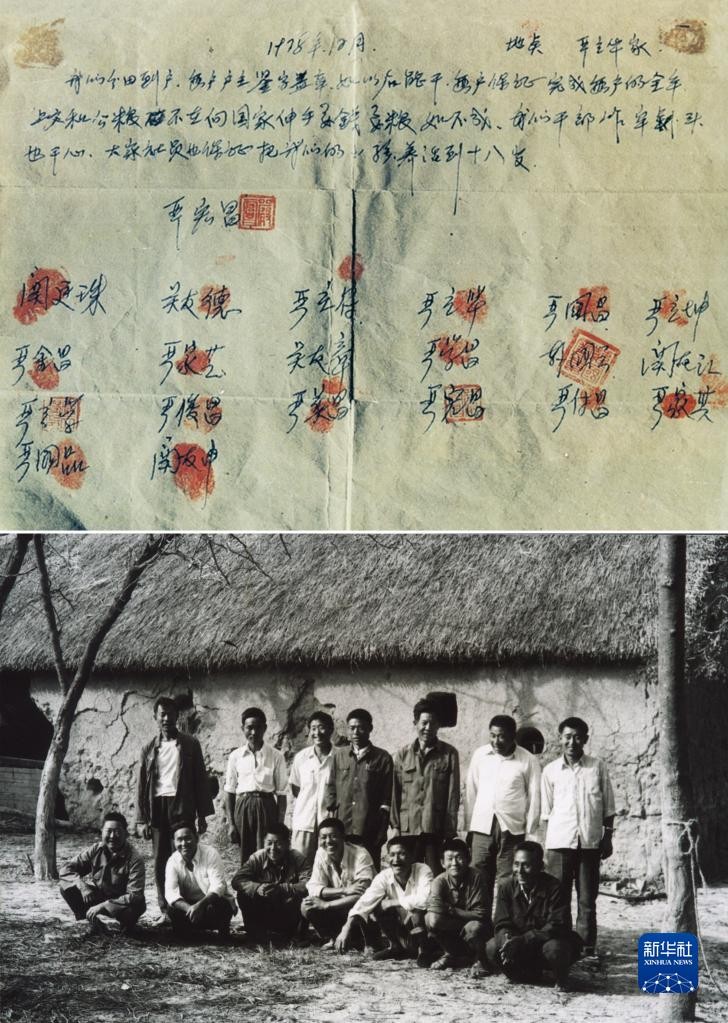 1978年12月. 地点 严立华家
我们分田到户,每户户主签字盖章,如以后能干,每户保证完成每户的全年
上交和公粮 不在向国家伸手要钱要粮 如不成,我们干部作牢刹头
也干心,大家社员也保证把我们的小孩养活到十八岁.
严宏昌
关廷珠 关友德 严立符 严立华 严国昌 严立坤
严金昌 严家芝 关友章 严学昌 韩国云 关友江
严立学 严俊昌 严美昌 严宏昌 严付昌 严家其
严国品 关友申
新华社
XINHUA NEWS